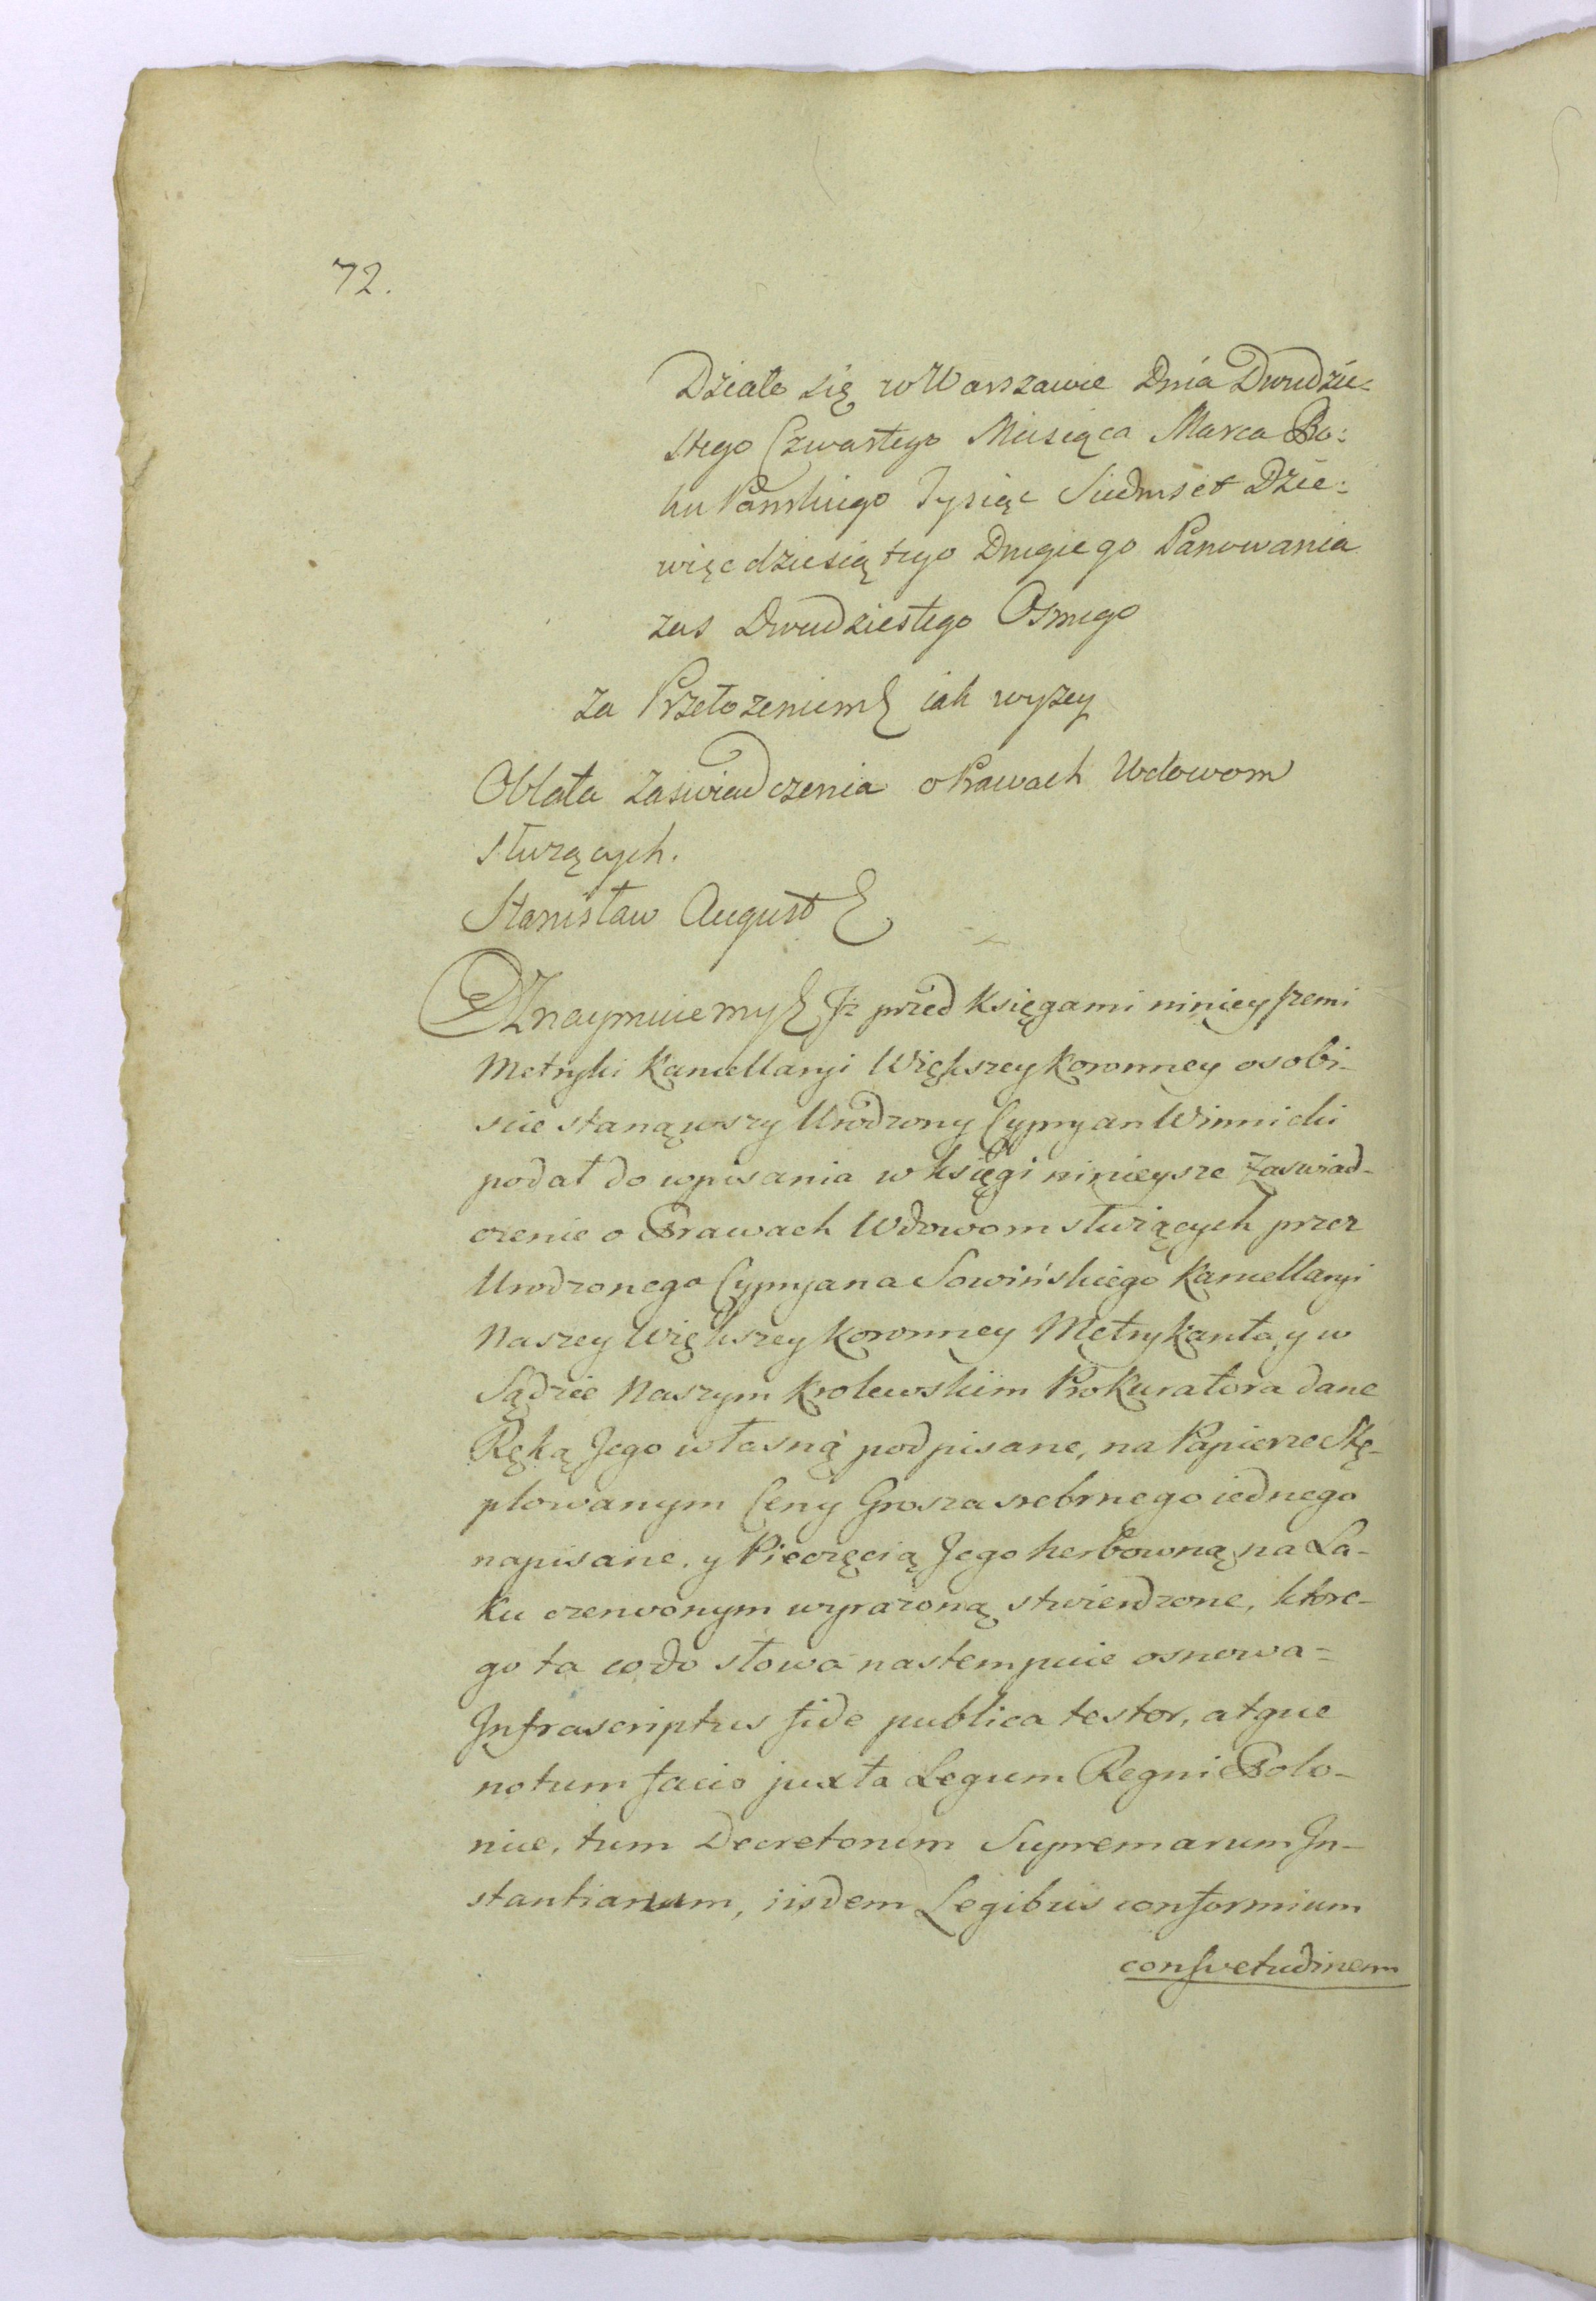 72.
Działo się w Warszawie Dnia Dwudzie=
stego Czwartego Miesiąca Marca Ro=
ku Pańskiego Tysiąc Siedmset Dzie=
więcdziesiątego Drugiego Panowania
zas Dwudziestego Osmego
za Przełozeniem iak wyzey
Oblata Zaswiadczenia o Prawach Wdowom
słuzących.
Stanisław August
Oznaymuiemy Jz przed Księgami ninieyszemi
Metryki Kancellaryi Większey Koronney osobi-
scie stanąwszy Urodzony Cypryan Winnicki
podał do wpisania w księgi ninieysze Zaswiad-
czenie o Prawach Wdowom słuzących przez
Urodzonego Cypryana Sowińskiego Kancellaryi
Naszey Większey Koronney Metrykanta, y w
Sądzie Naszym Krolewskim Prokuratora dane
Ręką Jego własną podpisane, na Papierze Stę-
plowanym Ceny Grosza srebrnego iednego
napisane, y Pieczęcią Jego herbowną na La-
ku czerwonym wyrazoną stwierdzone, ktore-
go ta co do słowa nastempuie osnowa=
Infrascriptus fide publica testor, atque
notum facio juxta Legum Regni Polo-
niae, tum Decretorum Supremarum In-
stantiarum, iisdem Legibus conformium
consvetudinem